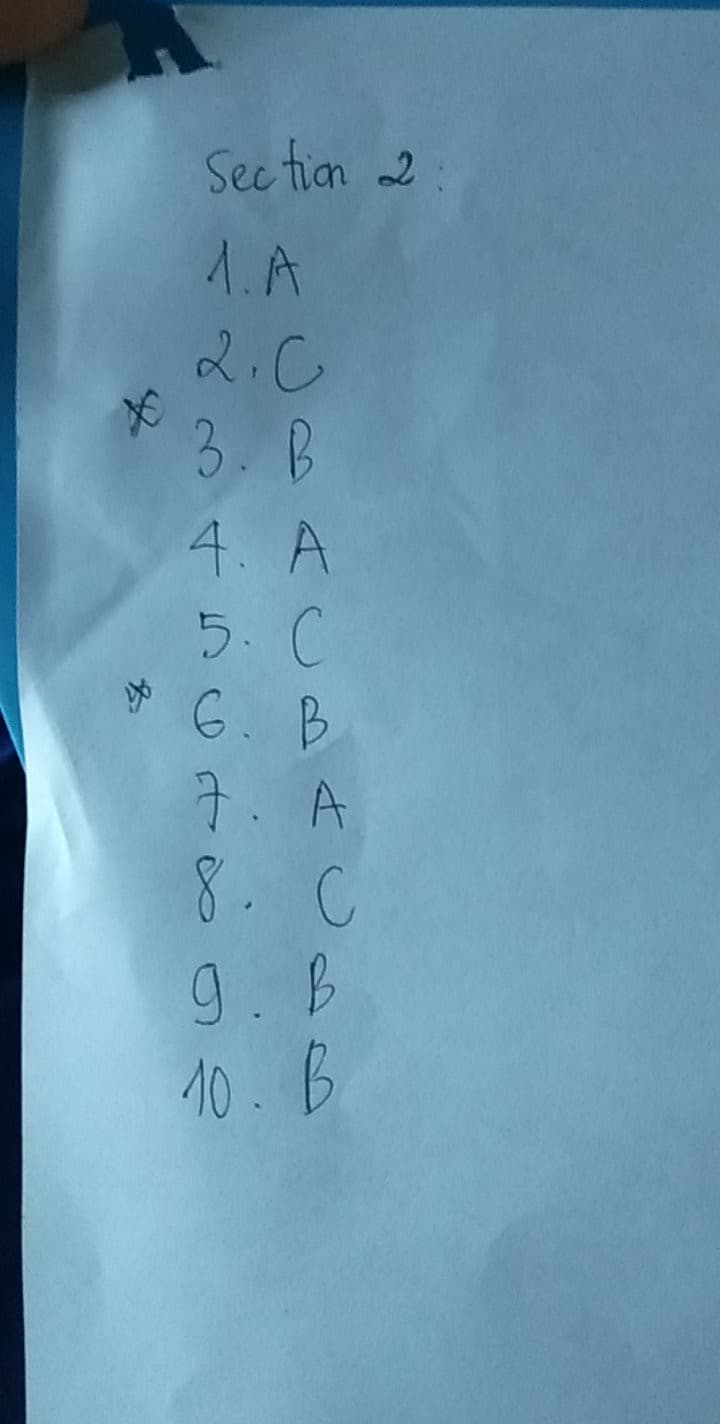 Section 2:
1. A
2. C
* 3. B
4. A
5. C
* 6. B
7. A
8. C
9. B
10. B